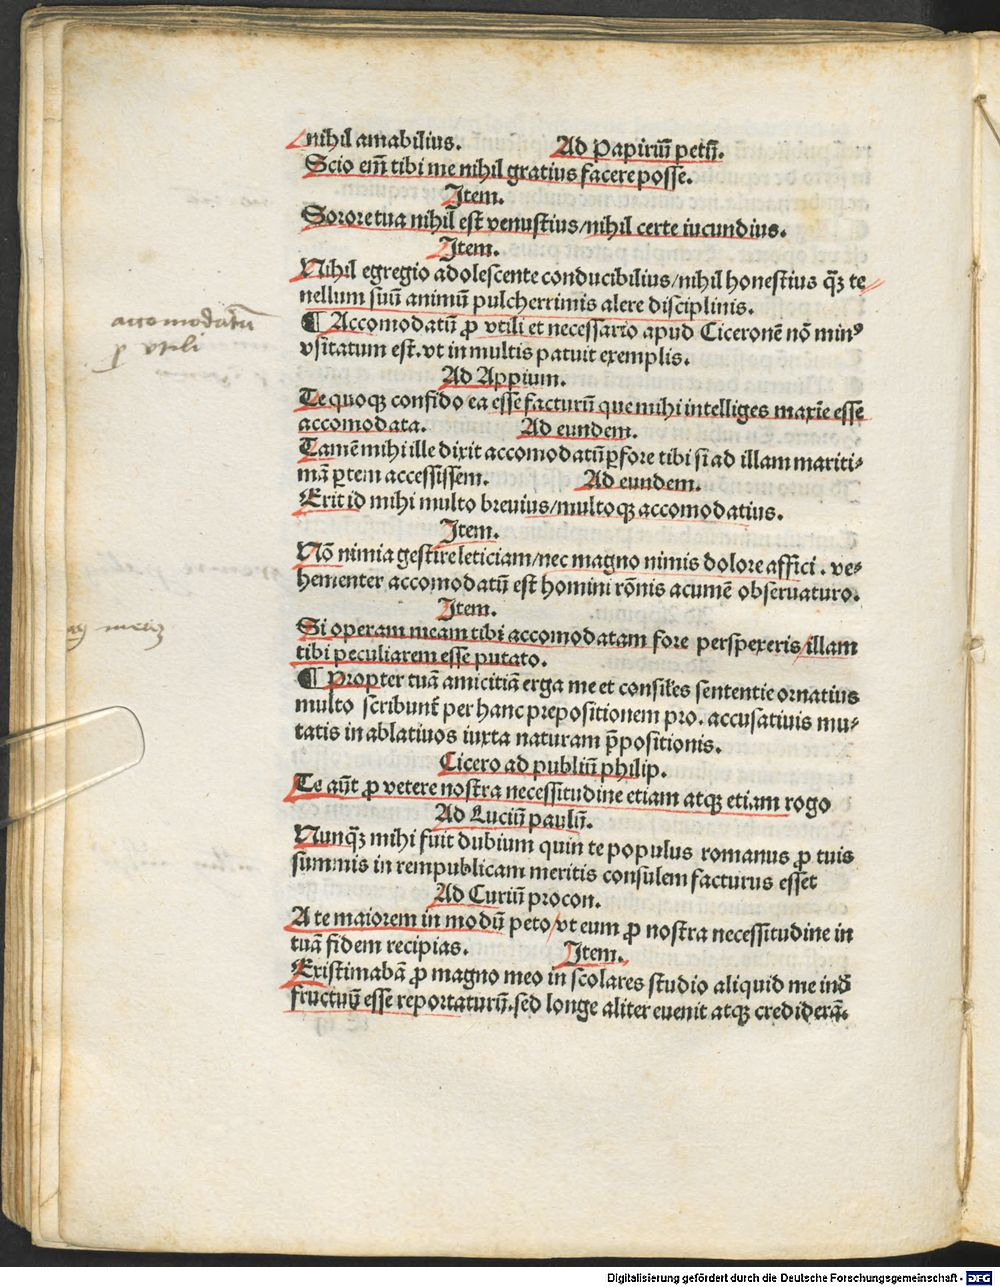 nihil amabilius. Ad Papiriū petū.
Scio em̄ tibi me nihil gratius facere posse.
Item.
Sorore tua nihil est venustius/nihil certe iucundius.
Item.
Nihil egregio adolescente conducibilius/nihil honestius qȝ te
nellum suū animū pulcherrimis alere disciplinis.
¶ Accomodatū ꝓ vtili et necessario apud Ciceronē nō minꝰ
vsitatum est. vt in multis patuit exemplis.
Ad Appium.
Te quoqꝫ confido ea esse facturū que mihi intelliges maxīe esse
accomodata. Ad eundem.
Tamē mihi ille dixit accomodatū ꝑfore tibi si ad illam mariti-
mā ꝑtem accessissem. Ad eundem.
Erit id mihi multo brevius/multoqꝫ accomodatius.
Item.
Nō nimia gestire leticiam/nec magno nimis dolore affici. ve-
hementer accomodatū est homini rōnis acumē obseruaturo.
Item.
Si operam meam tibi accomodatam fore perspexeris/illam
tibi peculiarem esse putato.
¶ Propter tuā amicitiā erga me et consiles sententie ornatius
multo scribunt̄ per hanc prepositionem pro. accusatiuis mu-
tatis in ablatiuos iuxta naturam p̄positionis.
Cicero ad publiū philip.
Te aūt ꝓ vetere nostra necessitudine etiam atqꝫ etiam rogo
Ad Luciū paulū.
Nunqȝ mihi fuit dubium quin te populus romanus ꝓ tuis
summis in rempublicam meritis consulem facturus esset
Ad Curiū procon.
A te maiorem in modū peto/vt eum ꝓ nostra necessitudine in
tuā fidem recipias. Item.
Existimabā ꝓ magno meo in scolares studio aliquid me inde
fructuū esse reportaturū. sed longe aliter euenit atqꝫ credideram.
accomodatum
ꝓ vtili
Digitalisierung gefördert durch die Deutsche Forschungsgemeinschaft - DFG